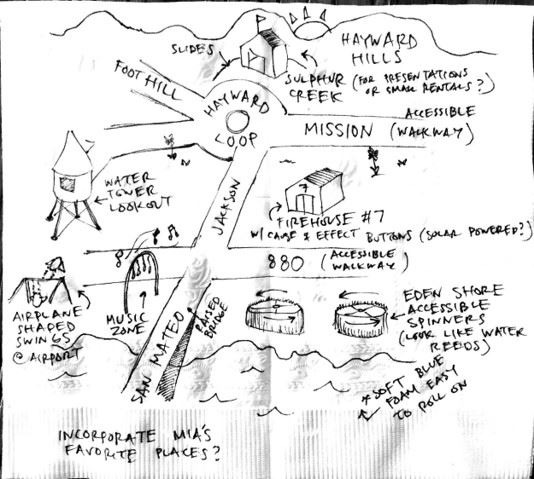 HAYWARD
HILLS
SLIDES
SULPHUR
CREEK
(FOR PRESENTATIONS
OR SMALL RENTALS?)
FOOTHILL
HAYWARD
LOOP
ACCESSIBLE
MISSION (WALKWAY)
WATER
TOWER
LOOKOUT
JACKSON
7
FIREHOUSE #7
W/ CAUSE & EFFECT BUTTONS (SOLAR POWERED?)
880 (ACCESSIBLE
WALKWAY)
AIRPLANE
SHAPED
SWINGS
@ AIRPORT
MUSIC
ZONE
SAN MATEO
RAISED
BRIDGE
EDEN SHORE
ACCESSIBLE
SPINNERS
(LOOK LIKE WATER
REEDS)
* SOFT BLUE
FOAM EASY
TO ROLL ON
INCORPORATE MIA'S
FAVORITE PLACES?